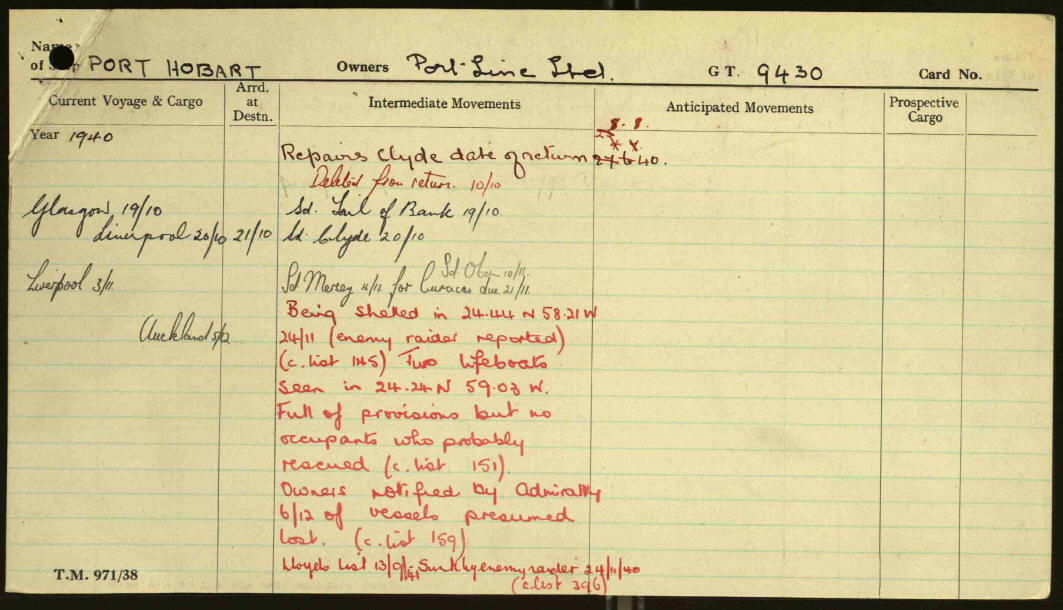 Name of Ship PORT HOBART Owners Port Line Ltd. G T. 9430 Card No.
Current Voyage & Cargo Arrd. at Destn. Intermediate Movements Anticipated Movements Prospective Cargo
8. 8.
Year 1940
Repairs Clyde date of return 27/6 40.
Deleted from return. 10/10
Glasgow 19/10 Sd. Tail of Bank 19/10.
Liverpool 20/10 21/10 Sd. Clyde 20/10
Sd. Oban 10/11.
Liverpool 3/11 Sd Mersey 4/11 for Curacao due 21/11.
Being shelled in 24.44 N 58.21 W
Auckland 5/12 24/11 (enemy raider reported)
(c. list 145) Two lifeboats
seen in 24.24 N 59.03 W.
Full of provisions but no
occupants who probably
rescued (c. list 151).
Owners notified by Admiralty
6/12 of vessels presumed
lost. (c. list 159)
T.M. 971/38 Lloyds List 13/9/41 - Sunk by enemy raider 24/11/40
(c. list 396)